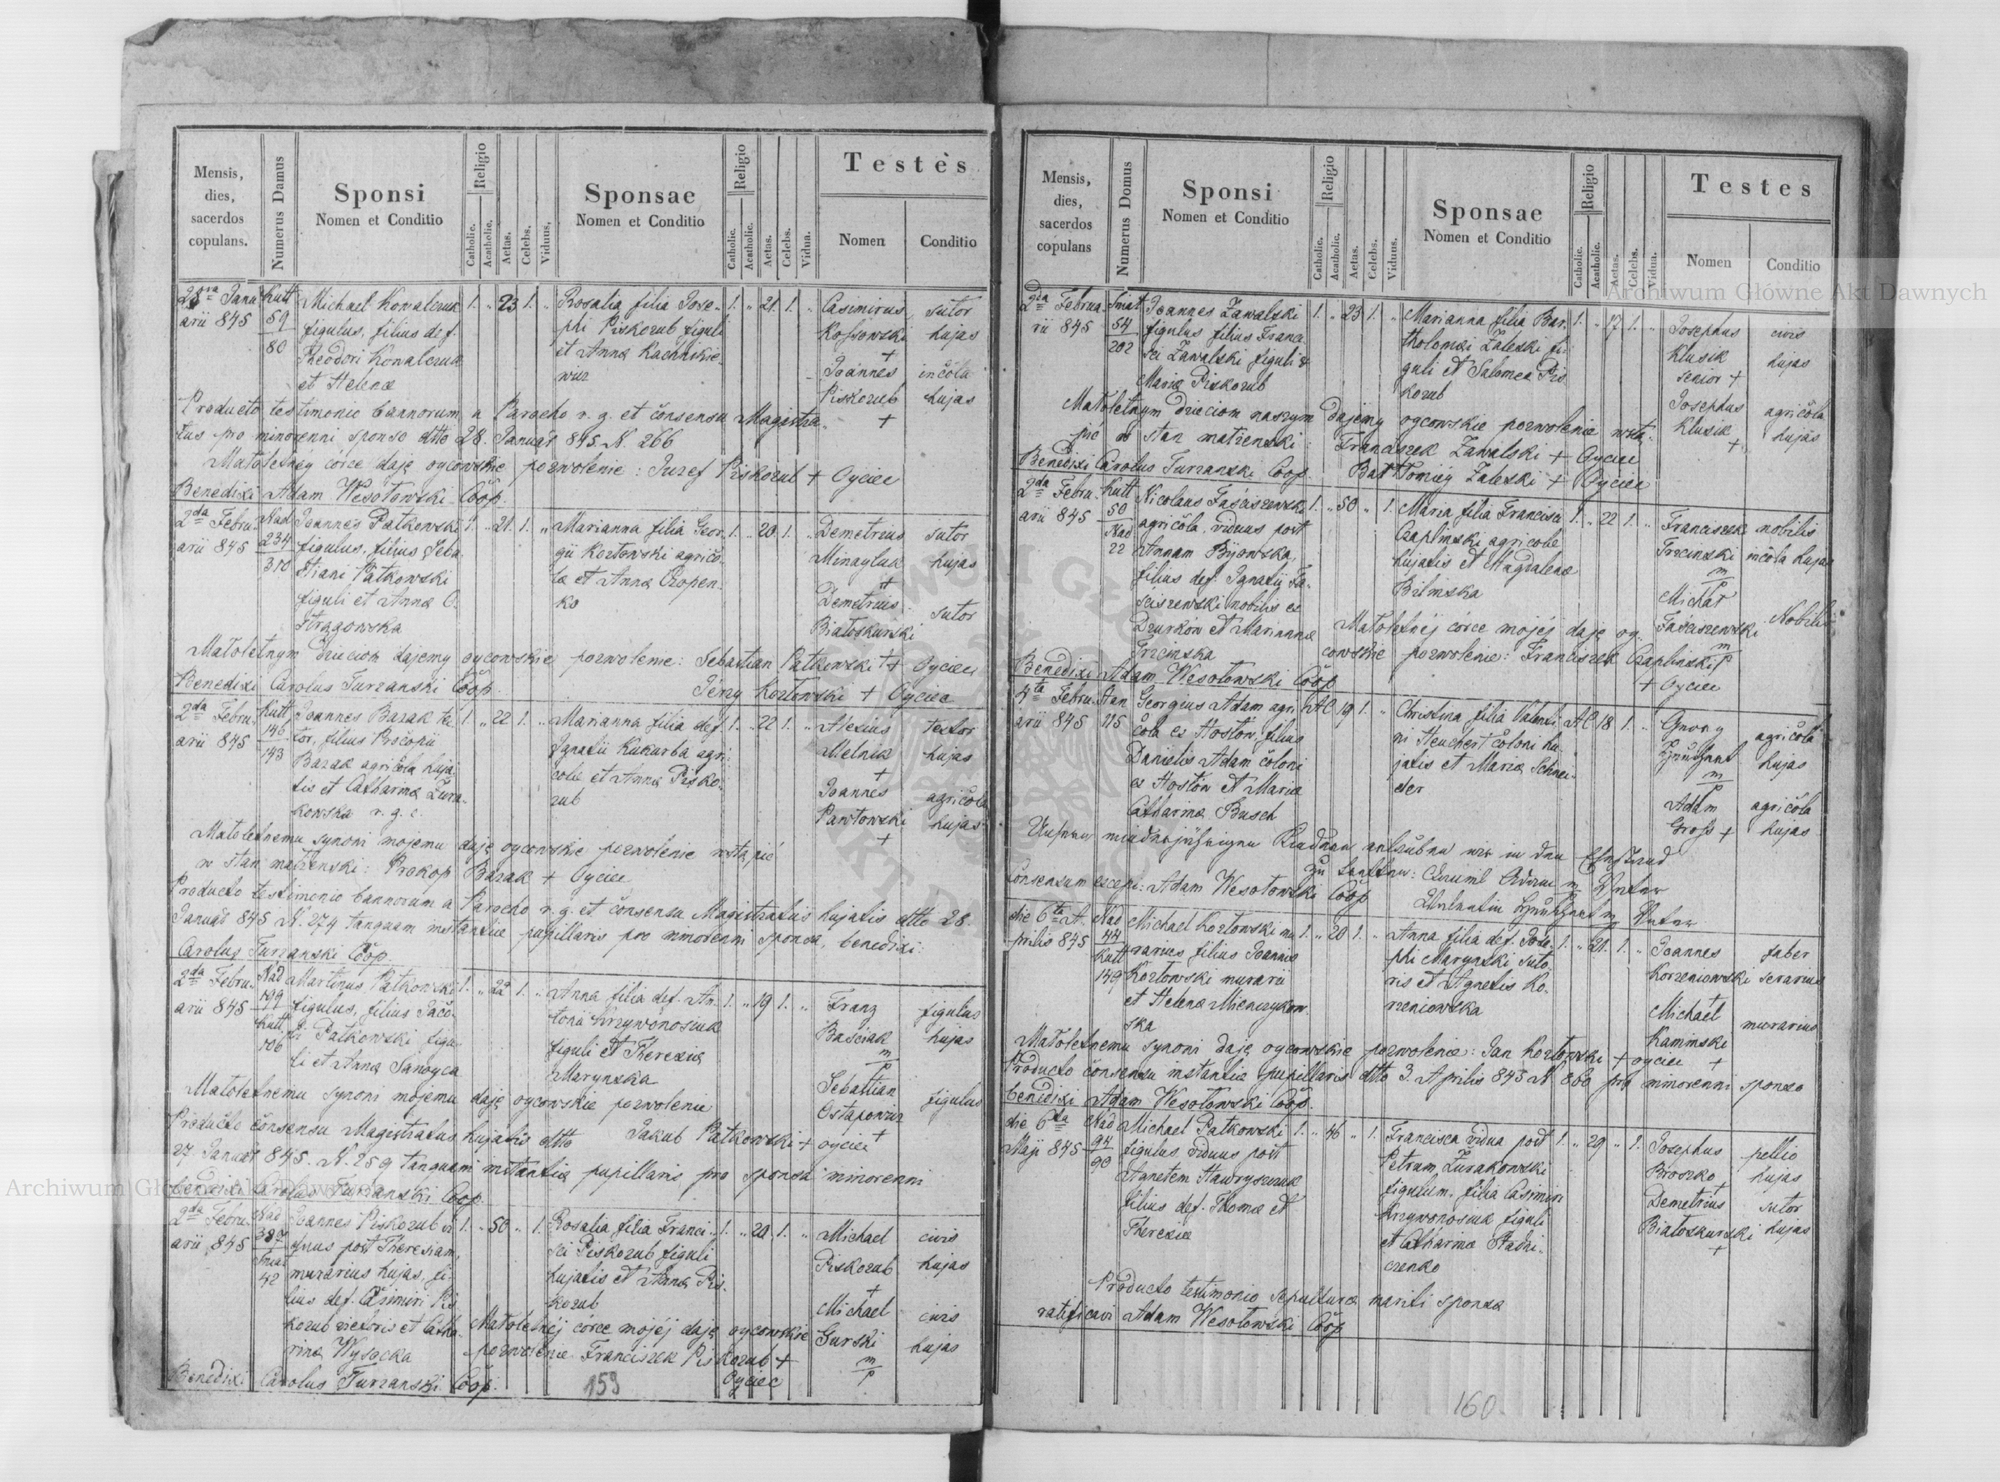 Mensis, dies, sacerdos copulans.
Numerus Damus
Sponsi
Nomen et Conditio
Religio
Catholic.
Acatholic.
Aetas.
Celebs.
Viduus.
Sponsae
Nomen et Conditio
Religio
Catholic.
Acatholic.
Aetas.
Celebs.
Vidua.
Testès
Nomen
Conditio
Janu
arii 845
Kutt
59
80
Michael Kowalczuk
figulus, filius def.
Theodori Kowalczuk
et Helenæ
1. " 23 1. "
Rosalia filia Jose-
phi Piskozub figuli
et Anna
1. " 21. 1. "
Casimirus sutor
Kossowski hujas
+
Joannes incola
Piskozub hujas
+
Producto testimonio bannorum a Parocho r. g. et consensu Magistra-
tus pro minorenni sponso dtto 28. Januar 845 N. 266
Małoletnéy córce daję oycowskie pozwolenie: Juzef Piskozub + Oyciec
Benedixi Adam Wesołowski Coop.
2da Febru-
arii 845
Nad
234
310
Joannes Patkowski
figulus, filius Seba-
stiani Patkowski
figuli et Anna O-
strągowska
1. " 21. 1. "
Marianna filia Geor-
gii Kozłowski agrico-
læ et Anna Czopen-
ko
1. " 20. 1. "
Demetrius sutor
Minayluk hujas
+
Demetrius sutor
Białoskurski
Małoletnym dzieciom dajemy oycowskie pozwolenie: Sebastian Patkowski + Oyciec
Benedixi Carolus Turzanski Coop. Jerzy Kozłowski + Oyciec
2da Febru-
arii 845
Kutt
146
143
Joannes Bazak te
tor, filius Procopii
Bazak agricola huja-
tis et Catharina Żura-
kowska r. g. c.
1. " 22 1. "
Marianna filia def.
Ignatii Kukurba agri-
colæ et Anna Pisko-
zub
1. " 22 1. "
Alexius textor
Melnik hujas
+
Joannes agricola
Pawłowski hujas
+
Małoletnemu synowi mojemu daję oycowskie pozwolenie wstąpić
w stan małżenski: Prokop Bazak + Oyciec
Producto testimonio bannorum a Parocho r. g. et consensu Magistratus hujatis dtto 28.
Januar 845 N. 274 tanquam instantiæ pupillaris pro minorenni sponsa, benedixi
Carolus Turzanski Coop.
2da Febru-
arii 845
Nad
199
Kutt
106
Martinus Patkowski
figulus, filius Jaco-
bi Patkowski figu-
li et Anna Sanoyca
1. " 22 1. "
Anna filia def. An-
tonii Krzywonosiuk
figuli et Theresiæ
Marynska
1. " 19 1. "
Franz figulus
Baściak hujas
m/p
Sebastian figulus
Ostapowicz
+
Małoletnemu synowi mojemu daję oycowskie pozwolenie
Jakub Patkowski + oyciec
Producto consensu Magistratus hujatis dtto
27 Januar 845. N. 259 tanquam instantiæ pupillaris pro sponsa minorenni
benedixi Carolus Turzanski Coop.
2da Febru-
arii 845
Nad
387
Smat
42
Joannes Piskozub vi
duus post Theresiam,
murarius hujas, fi-
lius def. Casimiri Pis
kozub et Catha-
rina Wysocka
1. " 50 " 1.
Rosalia filia Franci-
sci Piskozub figuli
hujatis et Anna Pis-
kozub
1. " 20 1. "
Michael civis
Piskozub hujas
+
Michael civis
Gurski hujas
m/p
Małoletnéj córce mojéj daję oycowskie
pozwolenie Franciszek Piskozub +
Oyciec
Benedixi Carolus Turzanski Coop.
159
Mensis, dies, sacerdos copulans
Numerus Domus
Sponsi
Nomen et Conditio
Religio
Catholic.
Acatholic.
Aetas.
Celebs.
Viduus.
Sponsae
Nomen et Conditio
Religio
Catholic.
Acatholic.
Aetas.
Celebs.
Vidua.
Testes
Nomen
Conditio
2da Februa-
rii 845
Smat
54
202
Joannes Zawalski
figulus filius Franci
sci Zawalski figuli &
Maria Piskozub
1. " 23 1. "
Marianna filia Bar-
tholomæi Zaleski fi-
guli et Salomea Pis
kozub
1. " 17 1. "
Josephus civis
Klusik hujas
senior +
Josephus agricola
Klusik hujas
+
Małoletnym dzieciom naszym dajemy oycowskie pozwolenie wstą-
pić w stan małżenski: Franciszek Zawalski + Oyciec
Benedixi Carolus Turzanski Coop. Bartłomiéy Zaleski + Oyciec
2da Febru-
arii 845
Kutt
50
Nad
22
Nicolaus Faściszewski
agricola, viduus post
Annam Bijowska,
filius def. Ignatii Fa-
ściszewski nobilis ex
Dzurków et Marianna
Trzcinska
1. " 50 " 1.
Maria filia Francisci
Czaplinski agricolæ
hujatis et Magdalena
Bilinska
1. " 22 1. "
Franciszek nobilis
Trzcinski incola hujas
m/p
Michał Nobilis
Faściszewski
m/p
Małoletnéj córce mojéj daję oy-
cowskie pozwolenie: Franciszek Czaplinski
+ Oyciec
Benedixi Adam Wesołowski Coop
4ta Febru-
arii 845
215
Georgius Adam agri
cola ex Hostow, filius
Danielis Adam coloni
ex Hostów et Maria
Catharina Busch
AC 19 1. "
Christina filia Valenti
ni Heuchert coloni hu-
jatis et Maria Schnei-
der
AC 18 1. "
Georg agricola
hujas
m/p
Adam agricola
Gross + hujas
Consensum excepi: Adam Wesołowski Coop
die 6ta A-
prilis 845
Nad
44
Kutt
149
Michael Kozłowski mu
rarius filius Joannis
Kozłowski murarii
et Helena Mienczykow
ska
1. " 20 1. "
Anna filia def. Jose-
phi Marynski suto-
ris et Agnetis Ko-
rzeniowska
1. " 21. 1. "
Joannes faber
Korzeniowski serarius
Michael murarius
Kaminski
+
Małoletnemu synowi daję oycowskie pozwolenie: Jan Kozłowski + oyciec
Producto consensu instantiæ pupillaris dtto 3. Aprilis 845 N 860 pro minorenni sponso
benedixi Adam Wesołowski Coop.
die 6ta
Maji 845
Nad
94
90
Michael Patkowski
figulus, viduus post
Agnetem Hawryszczuk
filius def. Thomæ et
Theresiæ
1. " 46 " 1.
Francisca vidua post
Petrum Żurakowski
figulum, filia Casimiri
Krzywonosiuk figuli
et Catharina Stadni-
czenko
1. " 29 " 1.
Josephus pellio
Broszko hujas
+
Demetrius sutor
Białoskurski hujas
+
Producto testimonio sepulturæ mariti sponsæ
ratificavi Adam Wesołowski Coop
160
Archiwum Główne Akt Dawnych
Archiwum Główne Akt Dawnych